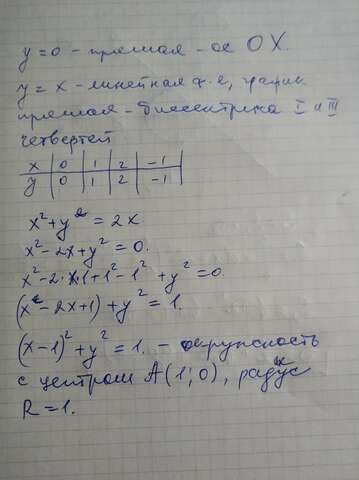 y = 0 - прямая - ос OX.
y = x - линейная ф-я, график
прямая - биссектриса I и III
четвертей
x | 0 | 1 | 2 | -1
y | 0 | 1 | 2 | -1
x² + y² = 2x
x² - 2x + y² = 0.
x² - 2·x·1 + 1² - 1² + y² = 0
(x² - 2x + 1) + y² = 1.
(x - 1)² + y² = 1. - окружность
с центром A(1; 0), радиус
R = 1.